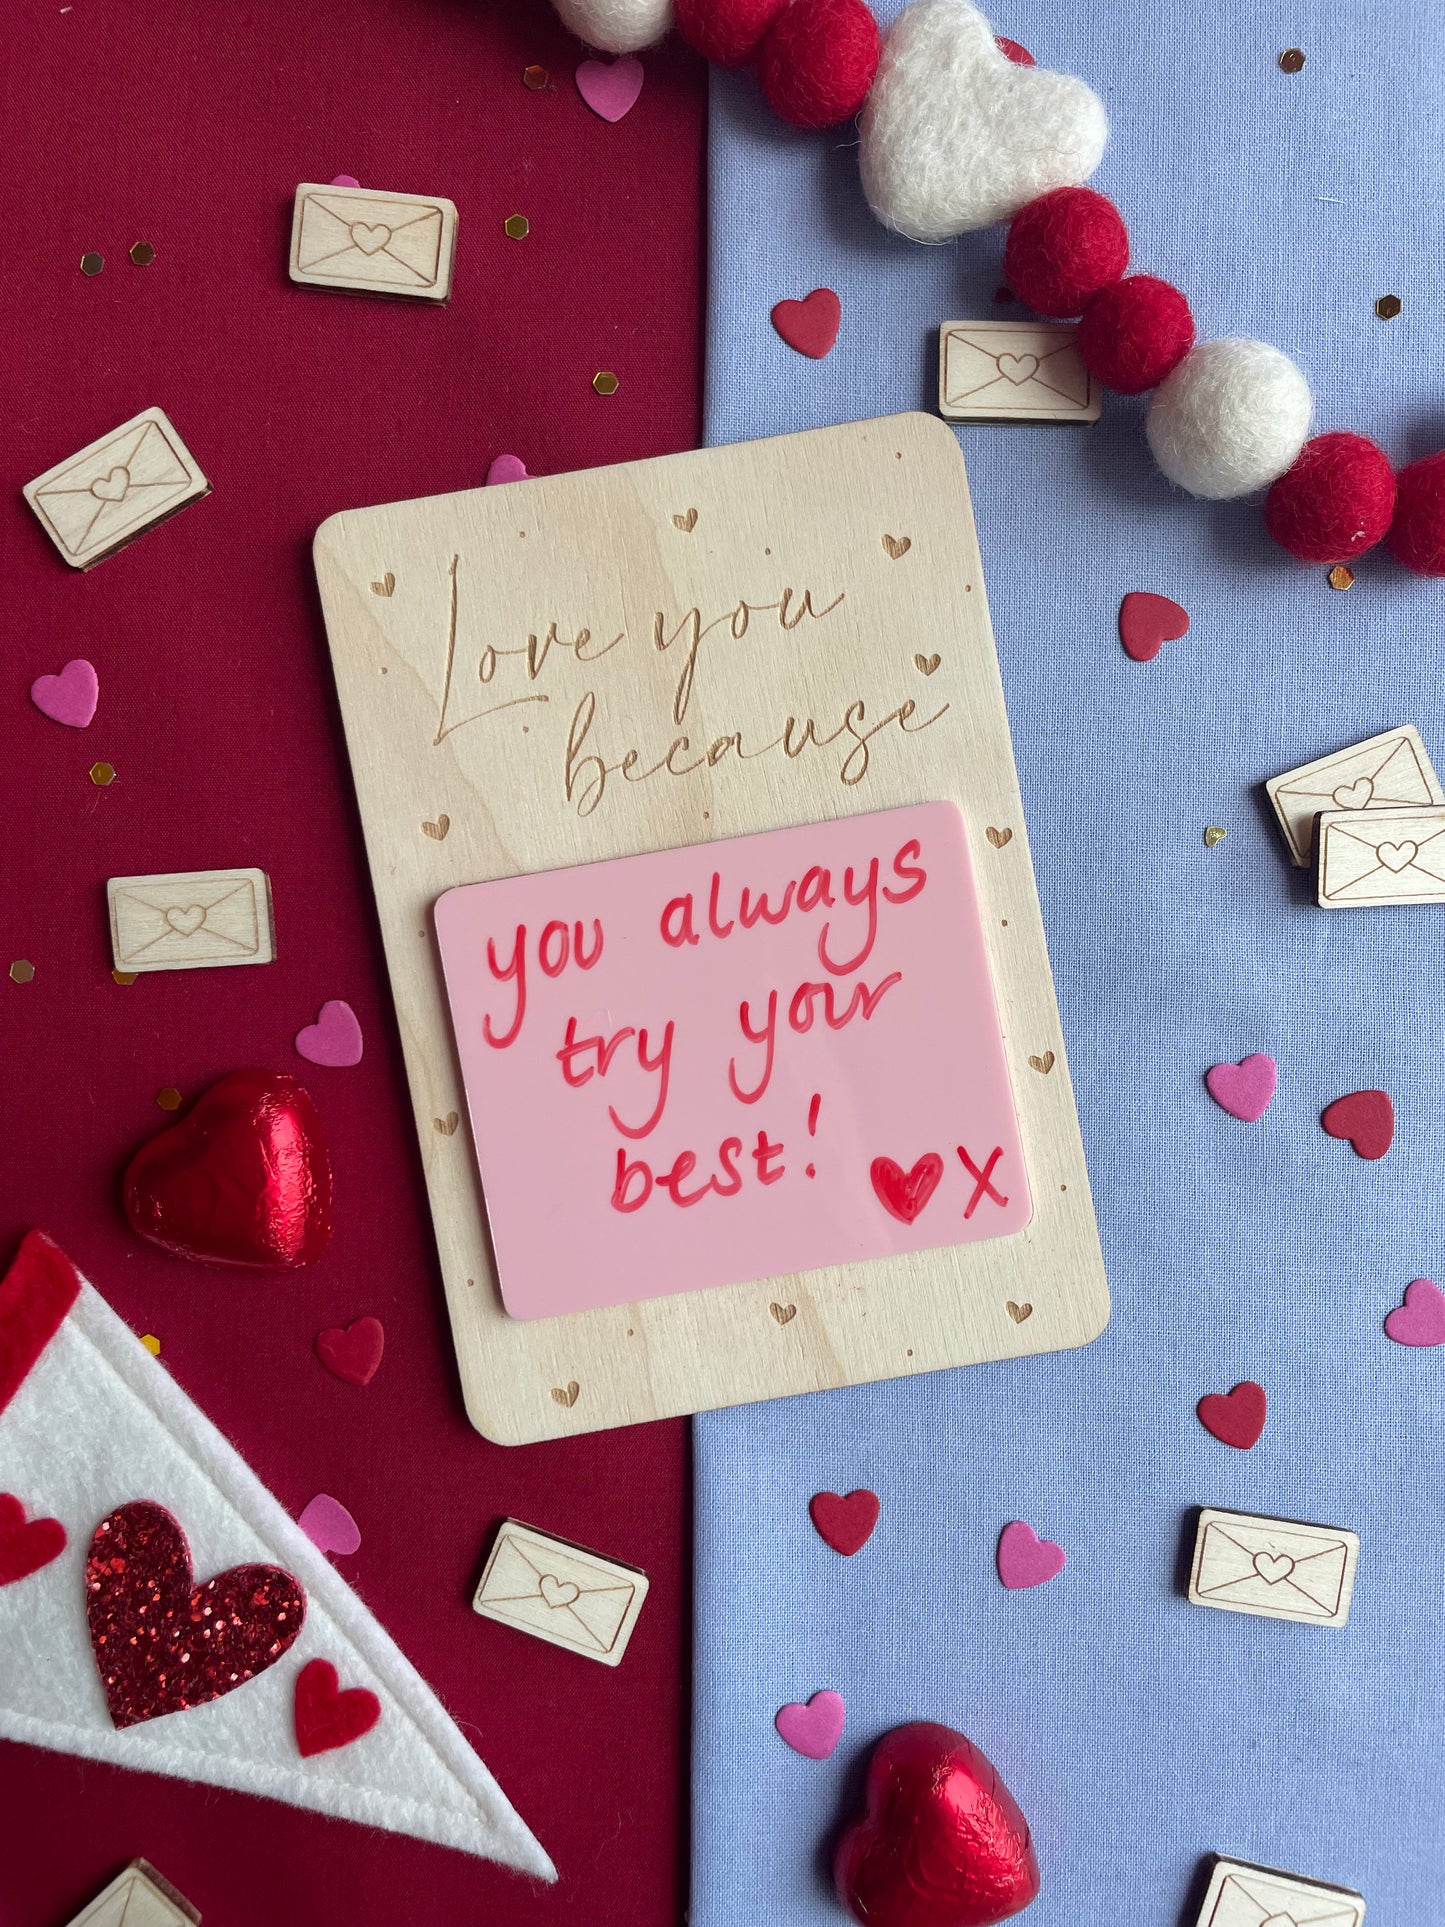 Love you
because
you always
try your
best!
X